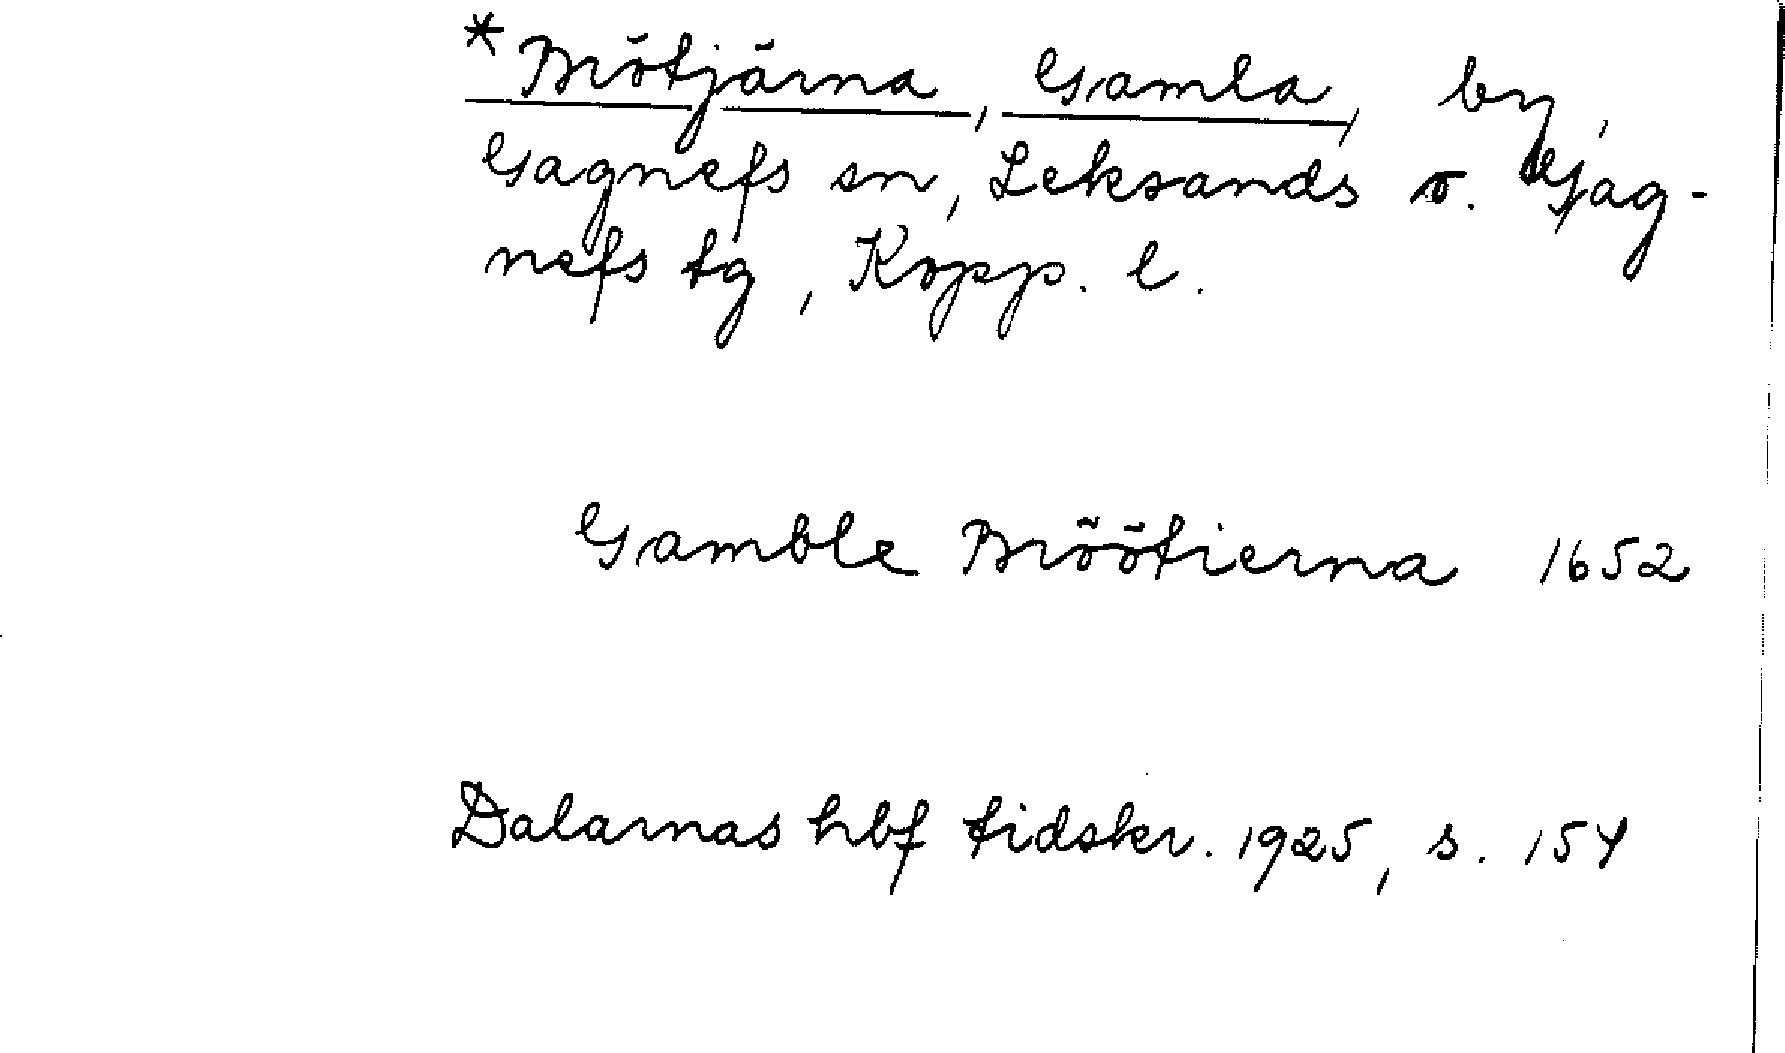 *Brötjärna, Gamla, by,
Gagnefs sn, Leksands o. Gag-
nefs tg, Kopp. l.
Gamble Bröötierna 1652
Dalarnas hbf tidskr. 1925, s. 154